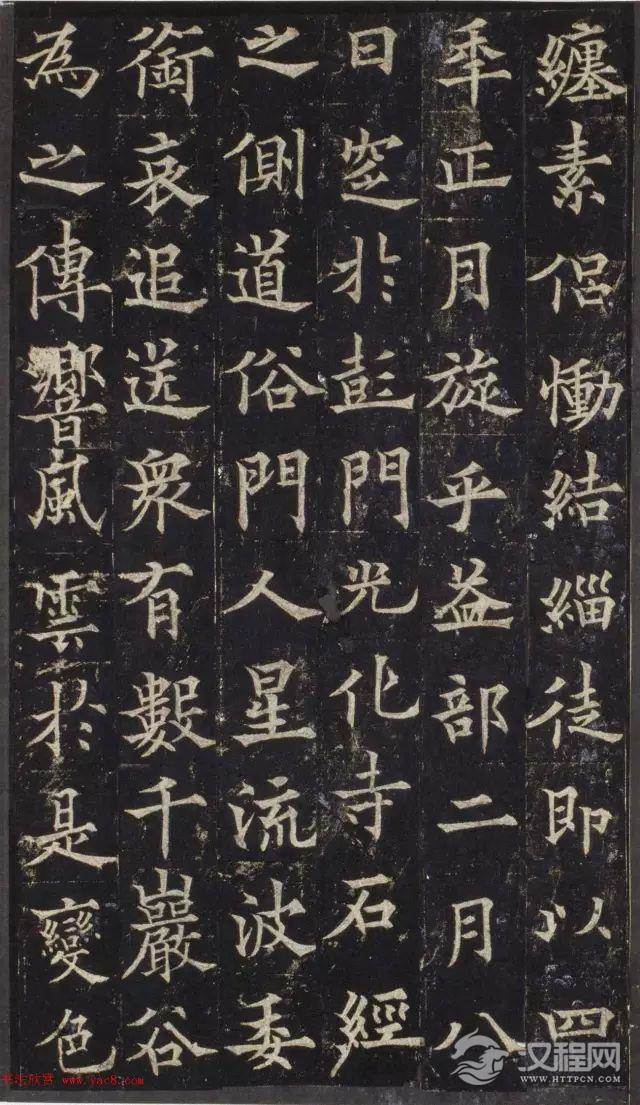 纏素侶慟結緇徒即以四
年正月旋乎益部二月八
日窆於彭門光化寺石經
之側道俗門人星流波委
銜哀追送衆有數千巖谷
為之傳響風雲於是變色
书法欣赏 www.yac8.com
汉程网
WWW.HTTPCN.COM